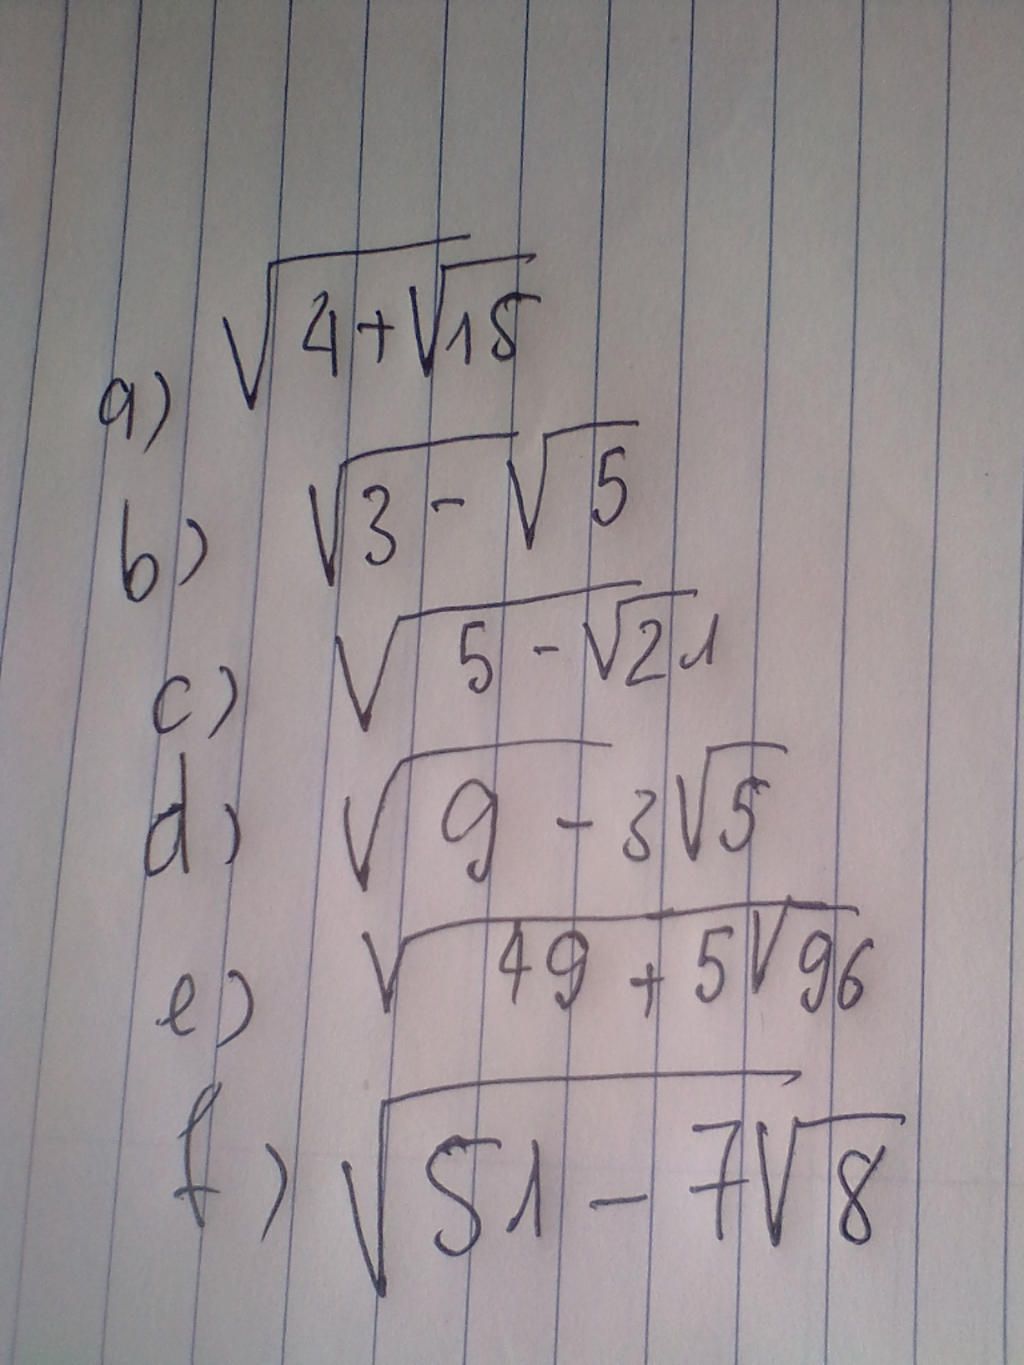 a) √(4+√15)
b) √(3-√5)
c) √(5-√21)
d) √(9-3√5)
e) √(49+5√96)
f) √(51-7√8)